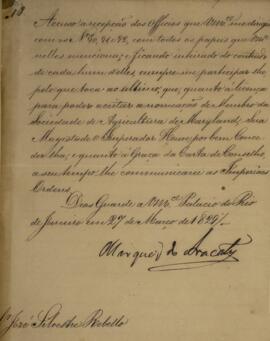 Accuso a recepção dos Officios que Vm.ce me dirigio
com os N.os 40, 41 e 42, com todos os papeis que
nelles menciona; e ficando inteirado do contheudo
de cada hum delles cumpre-me participar-lhe
pelo que toca ao ultimo, que, quanto a licença
para poder aceitar a nomeação de Membro da
Sociedade de Agricultura de Maryland, Sua
Magestade o Imperador Houve por bem Conce-
der-lha; e quanto á Graça da Carta de Conselho,
a seu tempo lhe communicarei as Imperiaes
Ordens.
Deos Guarde a Vm.ce Palacio do Rio
de Janeiro em 27 de Março de 1829.
Marquez do Aracaty
Snr. José Silvestre Rebello